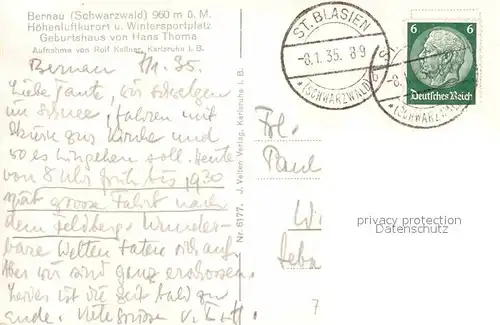 Bernau (Schwarzwald) 960 m ü. M.
Höhenluftkurort u. Wintersportplatz
Geburtshaus von Hans Thoma
Aufnahme von Rolf Kellner, Karlsruhe i. B.
Bernau 8/1. 35.
Liebe Tante, wir
im Schnee, fahren mit
zur Kirche und
wo es hingehen soll. Heute
von 8 Uhr früh bis 19 30
spät grosse Fahrt nach
dem Feldberg. Wunder-
bare Welten taten sich auf.
Aber wir sind ganz erschossen.
Leider ist die Zeit bald zu
Ende. Viele Grüsse v.
J. Velten Verlag, Karlsruhe i. B.
Nr. 6177.
ST. BLASIEN
-8.1.35. 8-9
(SCHWARZWALD)
6 6
Deutsches Reich
ST.
-8.
(SCHWARZWALD)
Frl.
Paul
7
privacy protection
Datenschutz